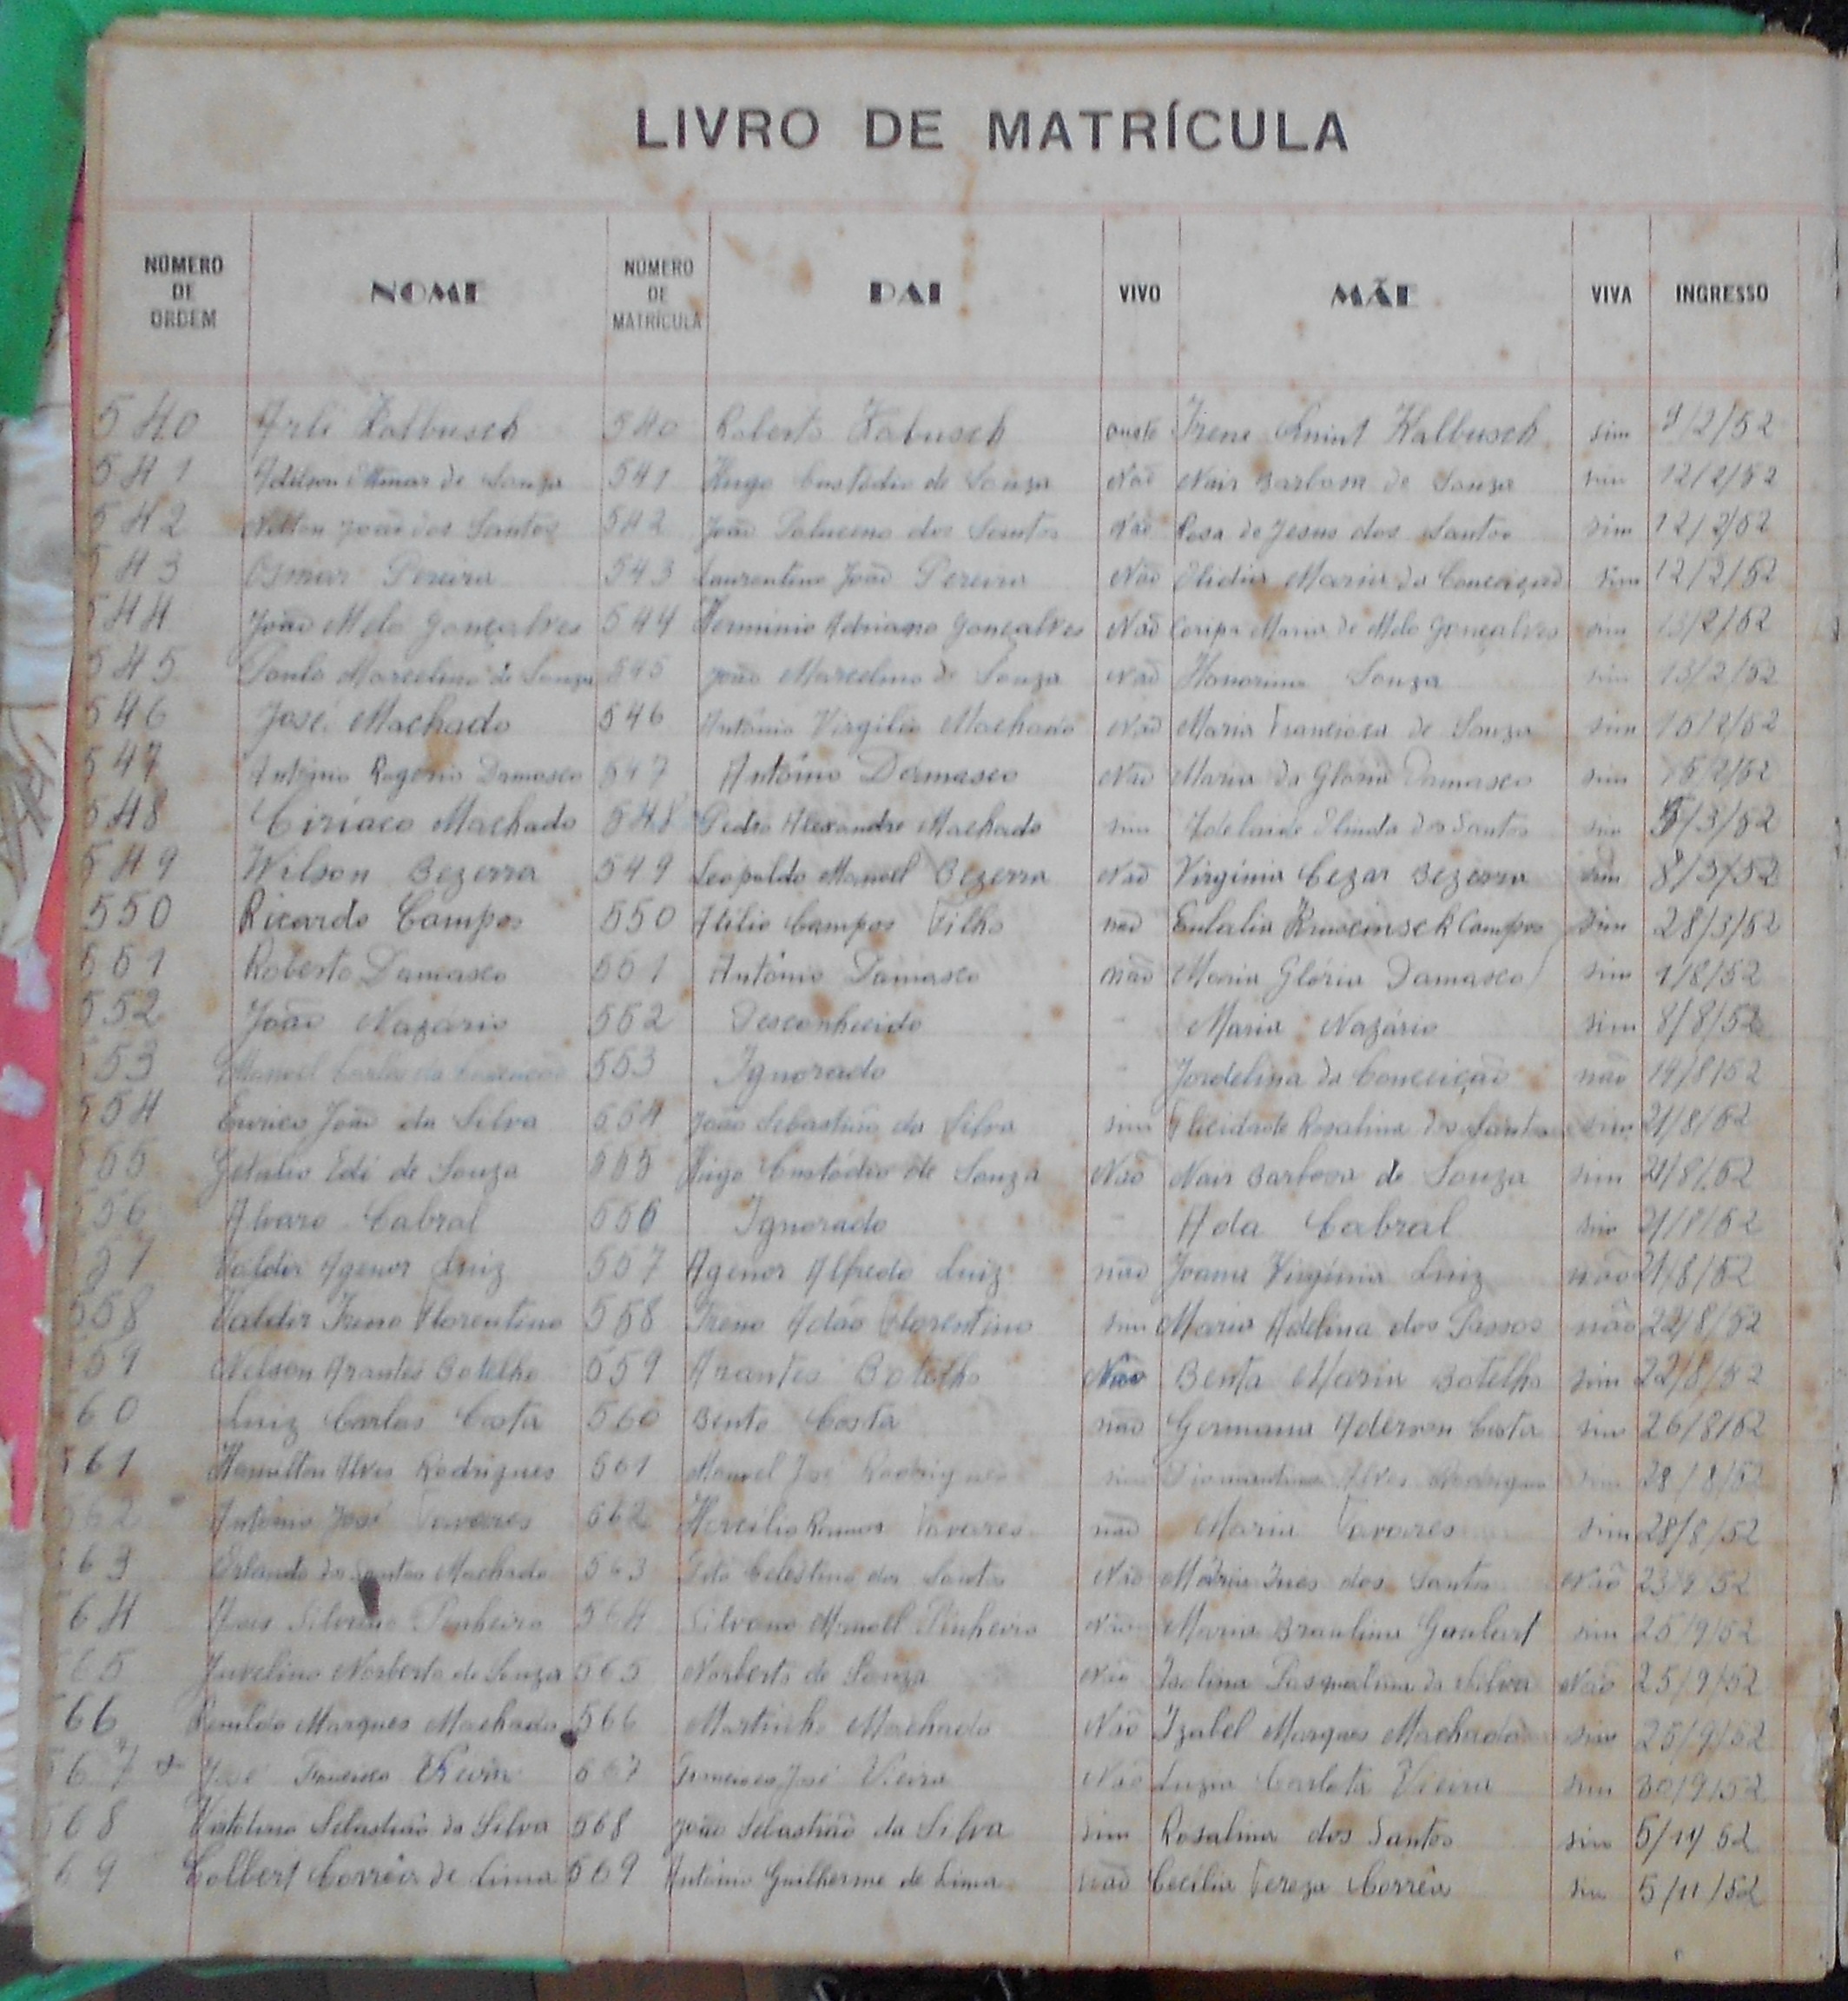 LIVRO DE MATRÍCULA
NÚMERO DE ORDEM NOME NÚMERO DE MATRÍCULA PAI VIVO MÃE VIVA INGRESSO
540 Arli Kalbusch 540 Roberto Kabusch Irene Kalbusch sim 9/2/52
541 de Souza 541 Hugo Custódio de Souza Não Nair Barbosa de Souza sim 12/2/52
542 Nilton João dos Santos 542 João dos Santos Não Rosa de Jesus dos Santos sim 12/2/52
543 Osmar Pereira 543 Laurentino João Pereira Não Maria da Conceição sim 12/2/52
544 João Melo Gonçalves 544 Hermínio Adriano Gonçalves Não Maria de Melo Gonçalves sim 13/2/52
545 Paulo Marcelino de Souza 545 João Marcelino de Souza Não Honorina Souza sim 13/2/52
546 José Machado 546 Antônio Virgílio Machado Não Maria Francisca de Souza sim 15/2/52
547 Antônio Rogério Damasco 547 Antônio Damasco Não Maria da Glória Damasco sim 15/2/52
548 Ciríaco Machado 548 Pedro Alexandre Machado sim Adelaide Olinda dos Santos sim 5/3/52
549 Wilson Bezerra 549 Leopoldo Manoel Bezerra Não Virgínia Cezar Bezerra sim 8/3/52
550 Ricardo Campos 550 Atílio Campos Filho não Eulalia Campos sim 28/3/52
551 Roberto Damasco 551 Antônio Damasco não Maria Glória Damasco sim 1/8/52
552 João Nazário 552 Desconhecido - Maria Nazário sim 8/8/52
553 Manoel da Conceição 553 Ignorado - Jordelina da Conceição não 19/8/52
554 Eurico João da Silva 554 João Sebastião da Silva sim Felicidade Rosalina dos Santos sim 21/8/52
555 Getúlio Edí de Souza 555 Hugo Custódio de Souza Não Nair Barbosa de Souza sim 21/8/52
556 Alvaro Cabral 556 Ignorado - Ada Cabral sim 21/8/52
557 Valdir Agenor Luiz 557 Agenor Alfredo Luiz não Joana Virgínia Luiz não 21/8/52
558 Valdir Ireno Florentino 558 Ireno Adão Florentino sim Maria Adelina dos Passos não 22/8/52
559 Nelson Arantes Botelho 559 Arantes Botelho Não Benta Maria Botelho sim 22/8/52
560 Luiz Carlos Costa 560 Bento Costa não Germana Aderson Costa sim 26/8/52
561 Hamilton Alves Rodrigues 561 Manoel José Rodrigues sim Alves Rodrigues sim 28/8/52
562 Antônio José Tavares 562 Hercílio Ramos Tavares não Maria Tavares sim 28/8/52
563 Orlando dos Santos Machado 563 Celestino dos Santos Não Maria Ines dos Santos Não 23/9/52
564 Pinheiro 564 Silvano Manoel Pinheiro Não Maria Braulina Goulart sim 25/9/52
565 Juvelino Norberto de Souza 565 Norberto de Souza Não Isolina Pasqualina da Silva Não 25/9/52
566 Marques Machado 566 Martinho Machado Não Izabel Marques Machado sim 25/9/52
567 José Francisco Vieira 567 Francisco José Vieira Não Luzia Carlota Vieira sim 30/9/52
568 Sebastião da Silva 568 João Sebastião da Silva sim Rosalina dos Santos sim 5/11/52
569 Colbert Corrêa de Lima 569 Antônio Guilherme de Lima não Cecília Tereza Corrêa sim 5/11/52